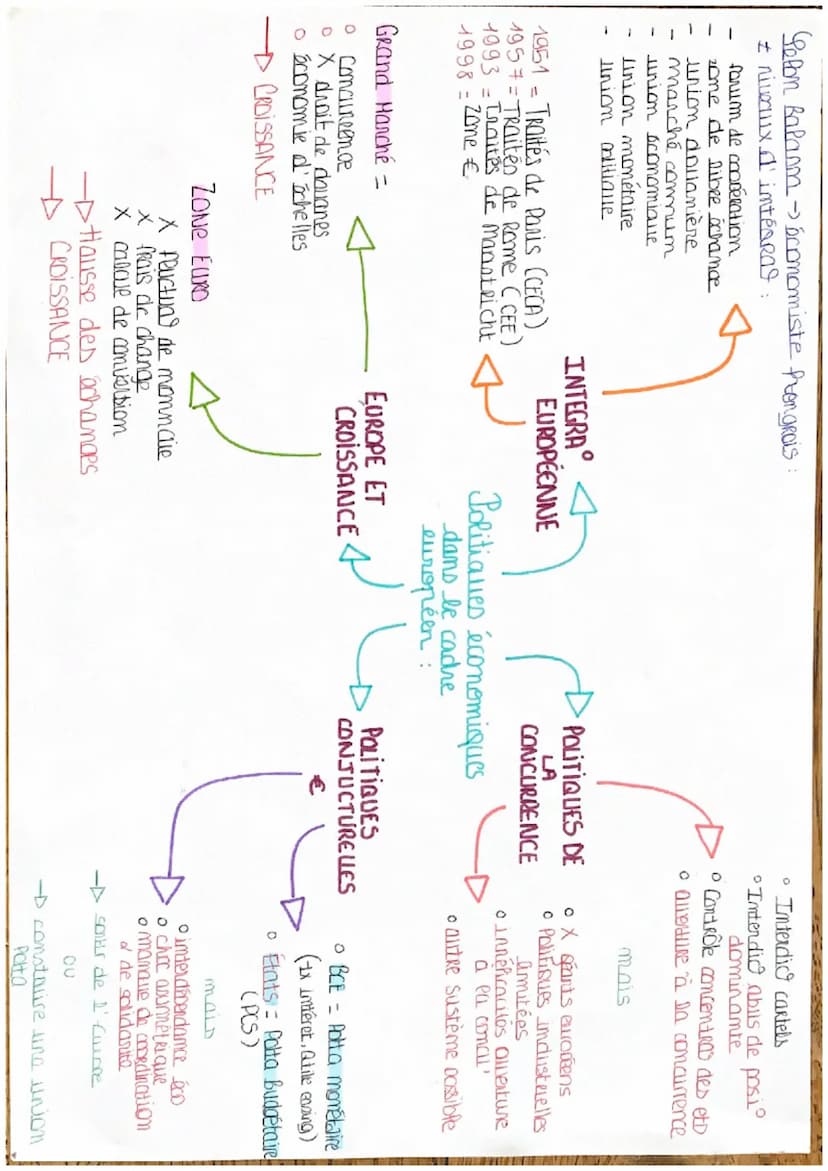 Selon Balassa → économiste hongrois :
≠ niveaux d'intégra° :
- forum de coopération
- zone de libre échange
- union douanière
- marché commun
- union économique
- union monétaire
- union politique
1951 = Traités de Paris (CECA)
1957 = Traités de Rome (CEE)
1993 = Traités de Maastricht
1998 = Zone €
INTEGRA°
EUROPÉENNE
Grand Marché =
o concurrence
o X droit de douanes
o économie d'échelles
→ CROISSANCE
ZONE EURO
X fluctua° de monnaie
X frais de change
X calcule de conversion
→ Hausse des échanges
→ CROISSANCE
EUROPE ET
CROISSANCE
Politiques économiques
dans le cadre
européen :
POLITIQUES DE
LA
CONCURRENCE
o Interdic° cartels
o Interdic° abus de posi°
dominante
o Contrôle concentra° des etp
o ouverture à la concurrence
mais
o X géants européens
o Politiques industrielles
limitées
o innéficacités ouverture
à la concu'
o autre système possible
POLITIQUES
CONJUCTURELLES
€
o BCE = Polta monétaire
(tx intéret, Qtite easing)
o États = Polta Budgétaire
(PCS)
mais
o interdépendance éco
o choc asymétrique
o manque de coordination
& de solidarité
→ sortir de l'Europe
ou
→ construire une union
Polta